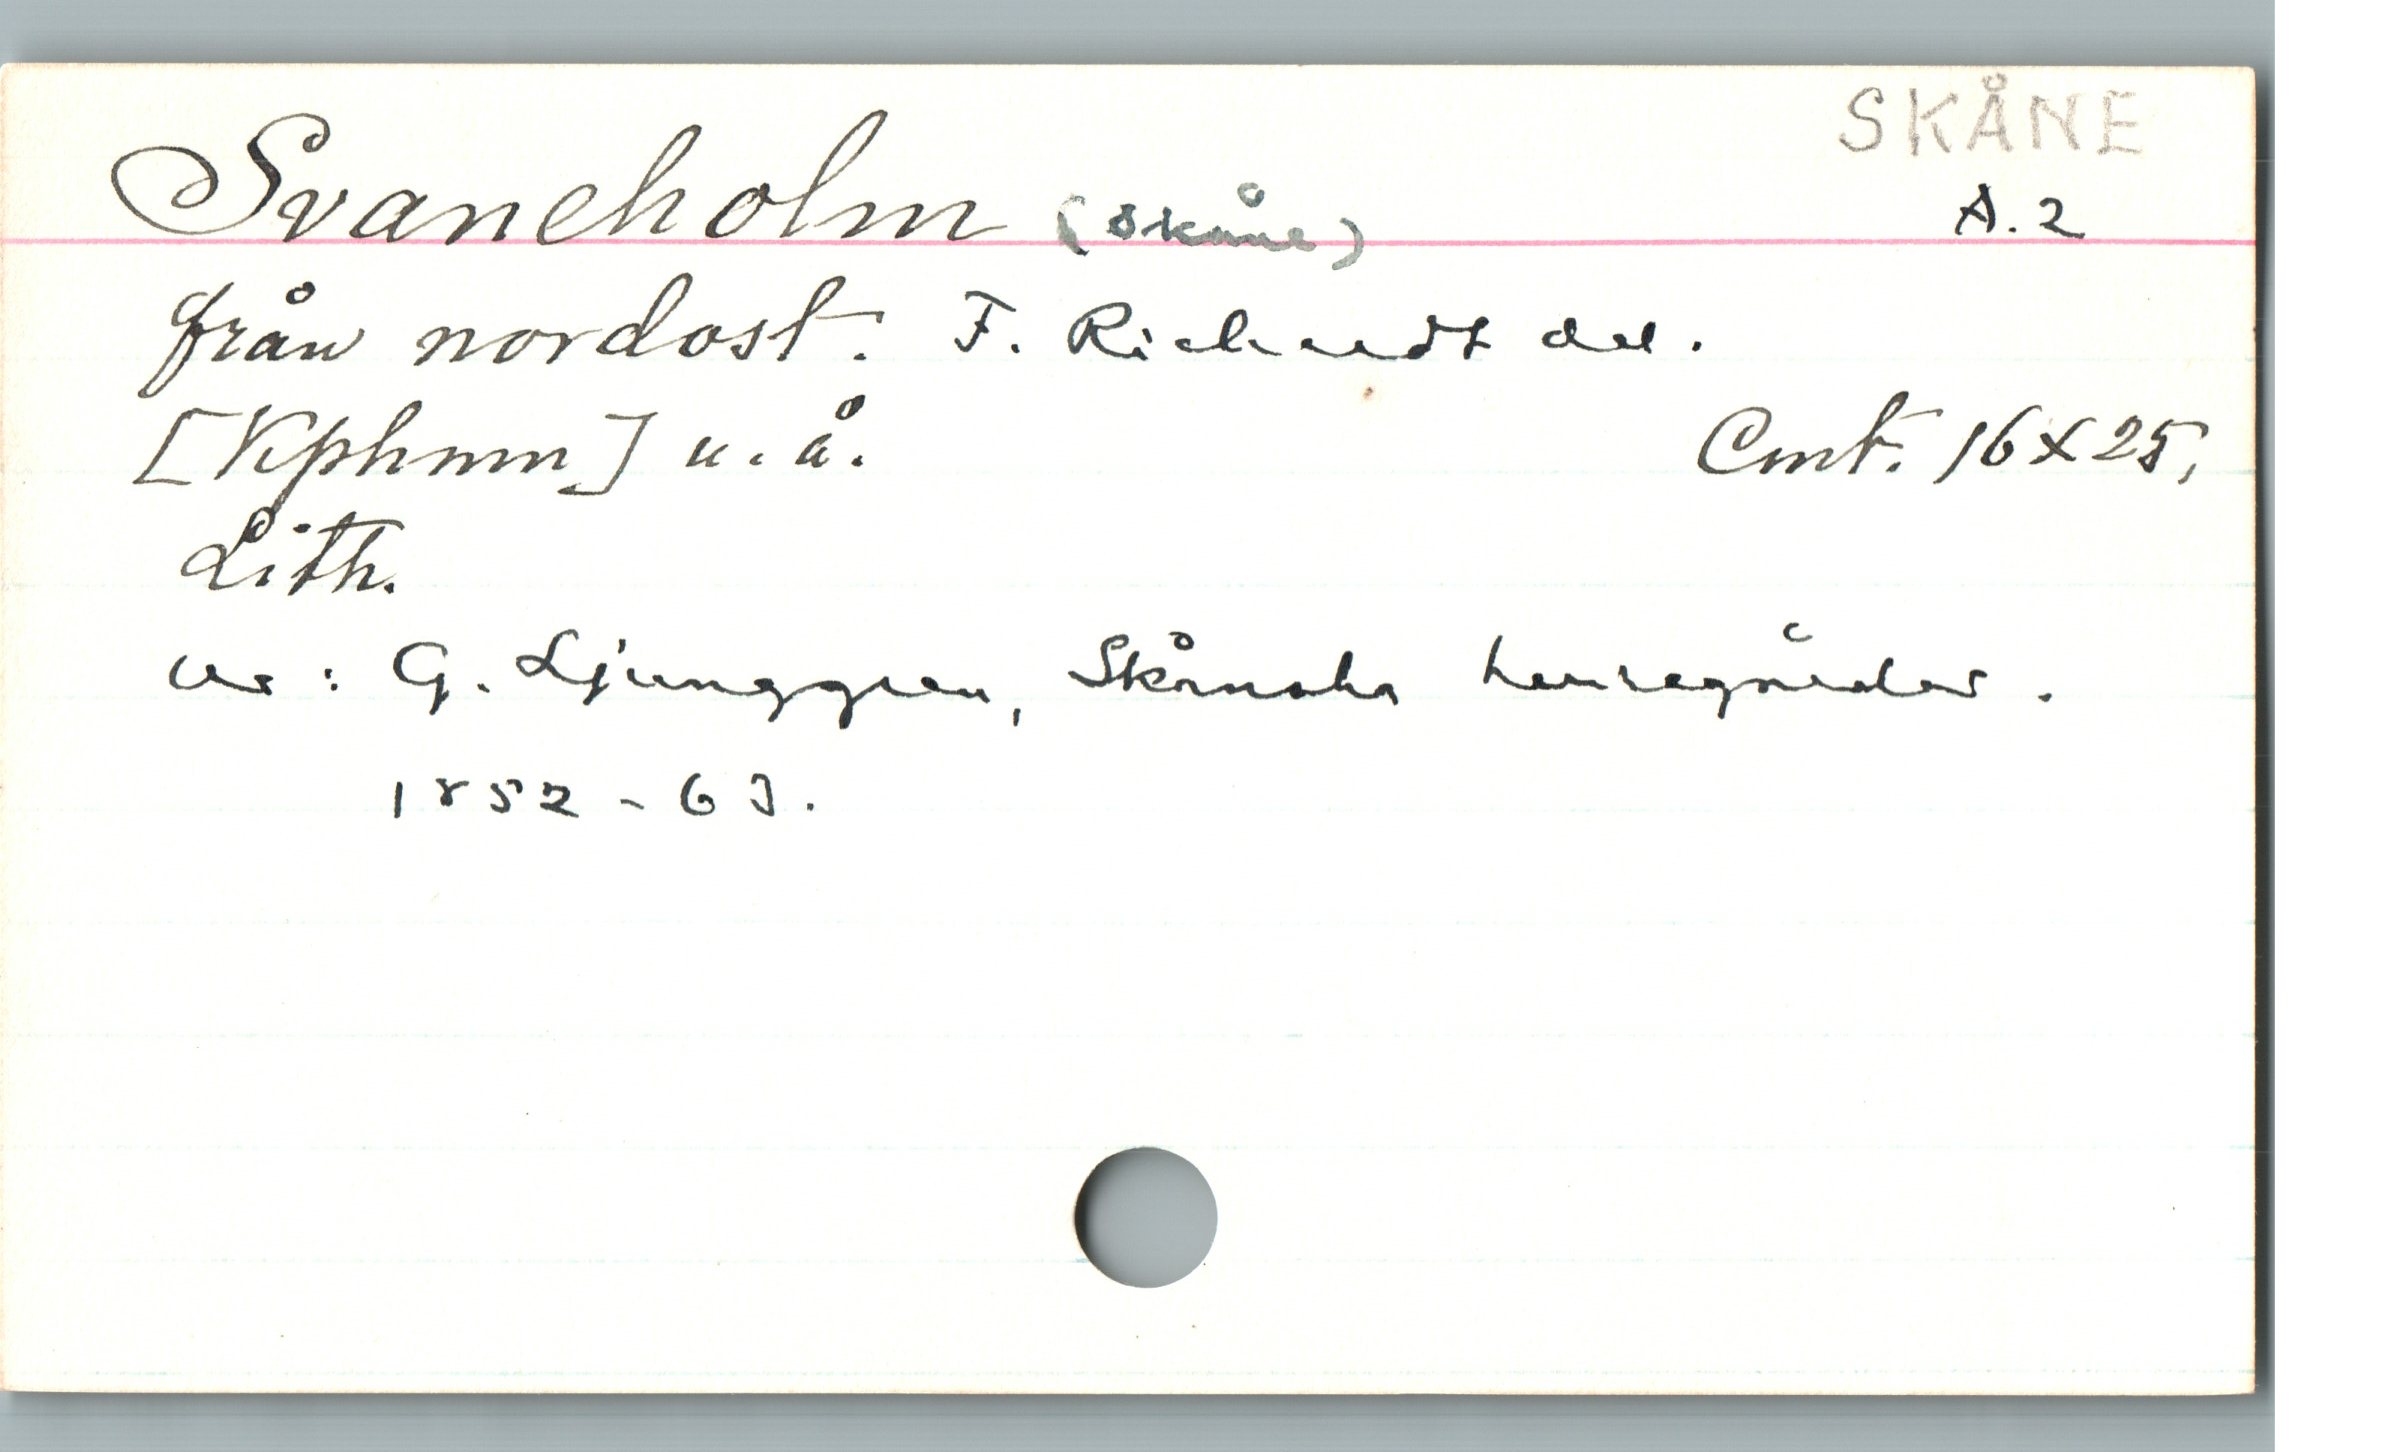 SKÅNE
Svaneholm (Skåne) A.2
från nordost. F. Richardt del.
[Kphmn] u.å. Cmt. 16x25,
Lith.
Ur: G. Ljunggren, Skånska herregårdar.
1852-63.